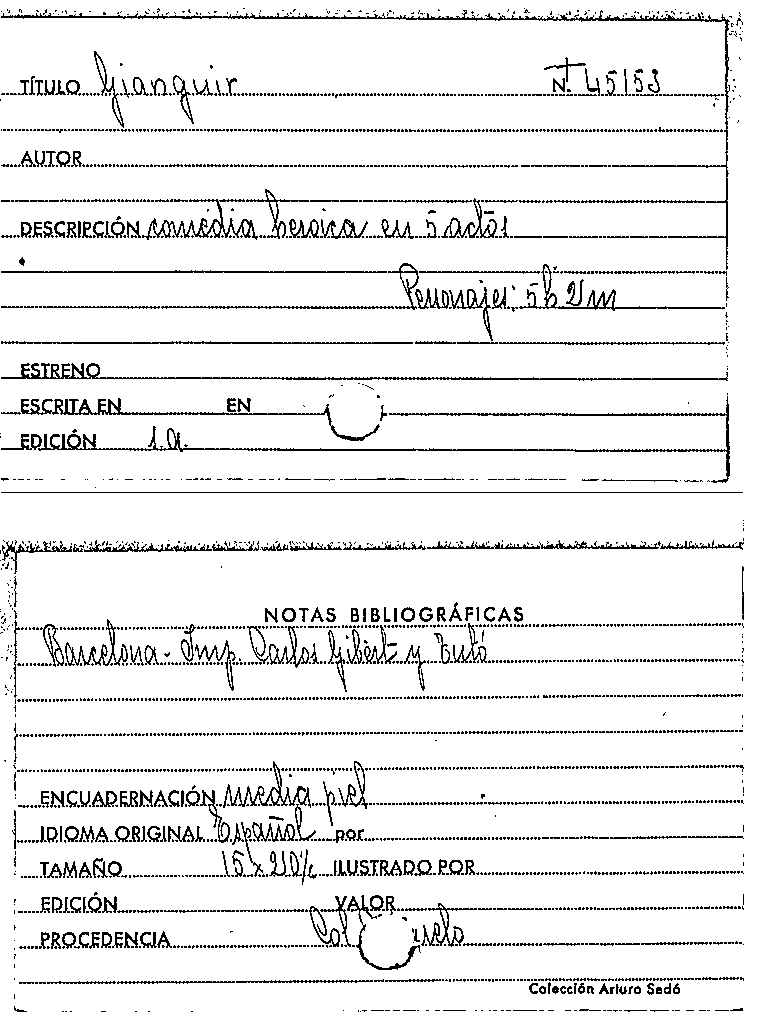 TÍTULO Gianguir N.º 45153
AUTOR
DESCRIPCIÓN comédia heroica en 5 actos
Personajes: 5 h 2 m
ESTRENO
ESCRITA EN EN
EDICIÓN 1.a.
NOTAS BIBLIOGRÁFICAS
Barcelona - Imp. Carlos Gibert y Tutó
ENCUADERNACIÓN media piel
IDIOMA ORIGINAL Español por
TAMAÑO 15 x 210% ILUSTRADO POR
EDICIÓN VALOR
PROCEDENCIA Col
Colección Arturo Sedó